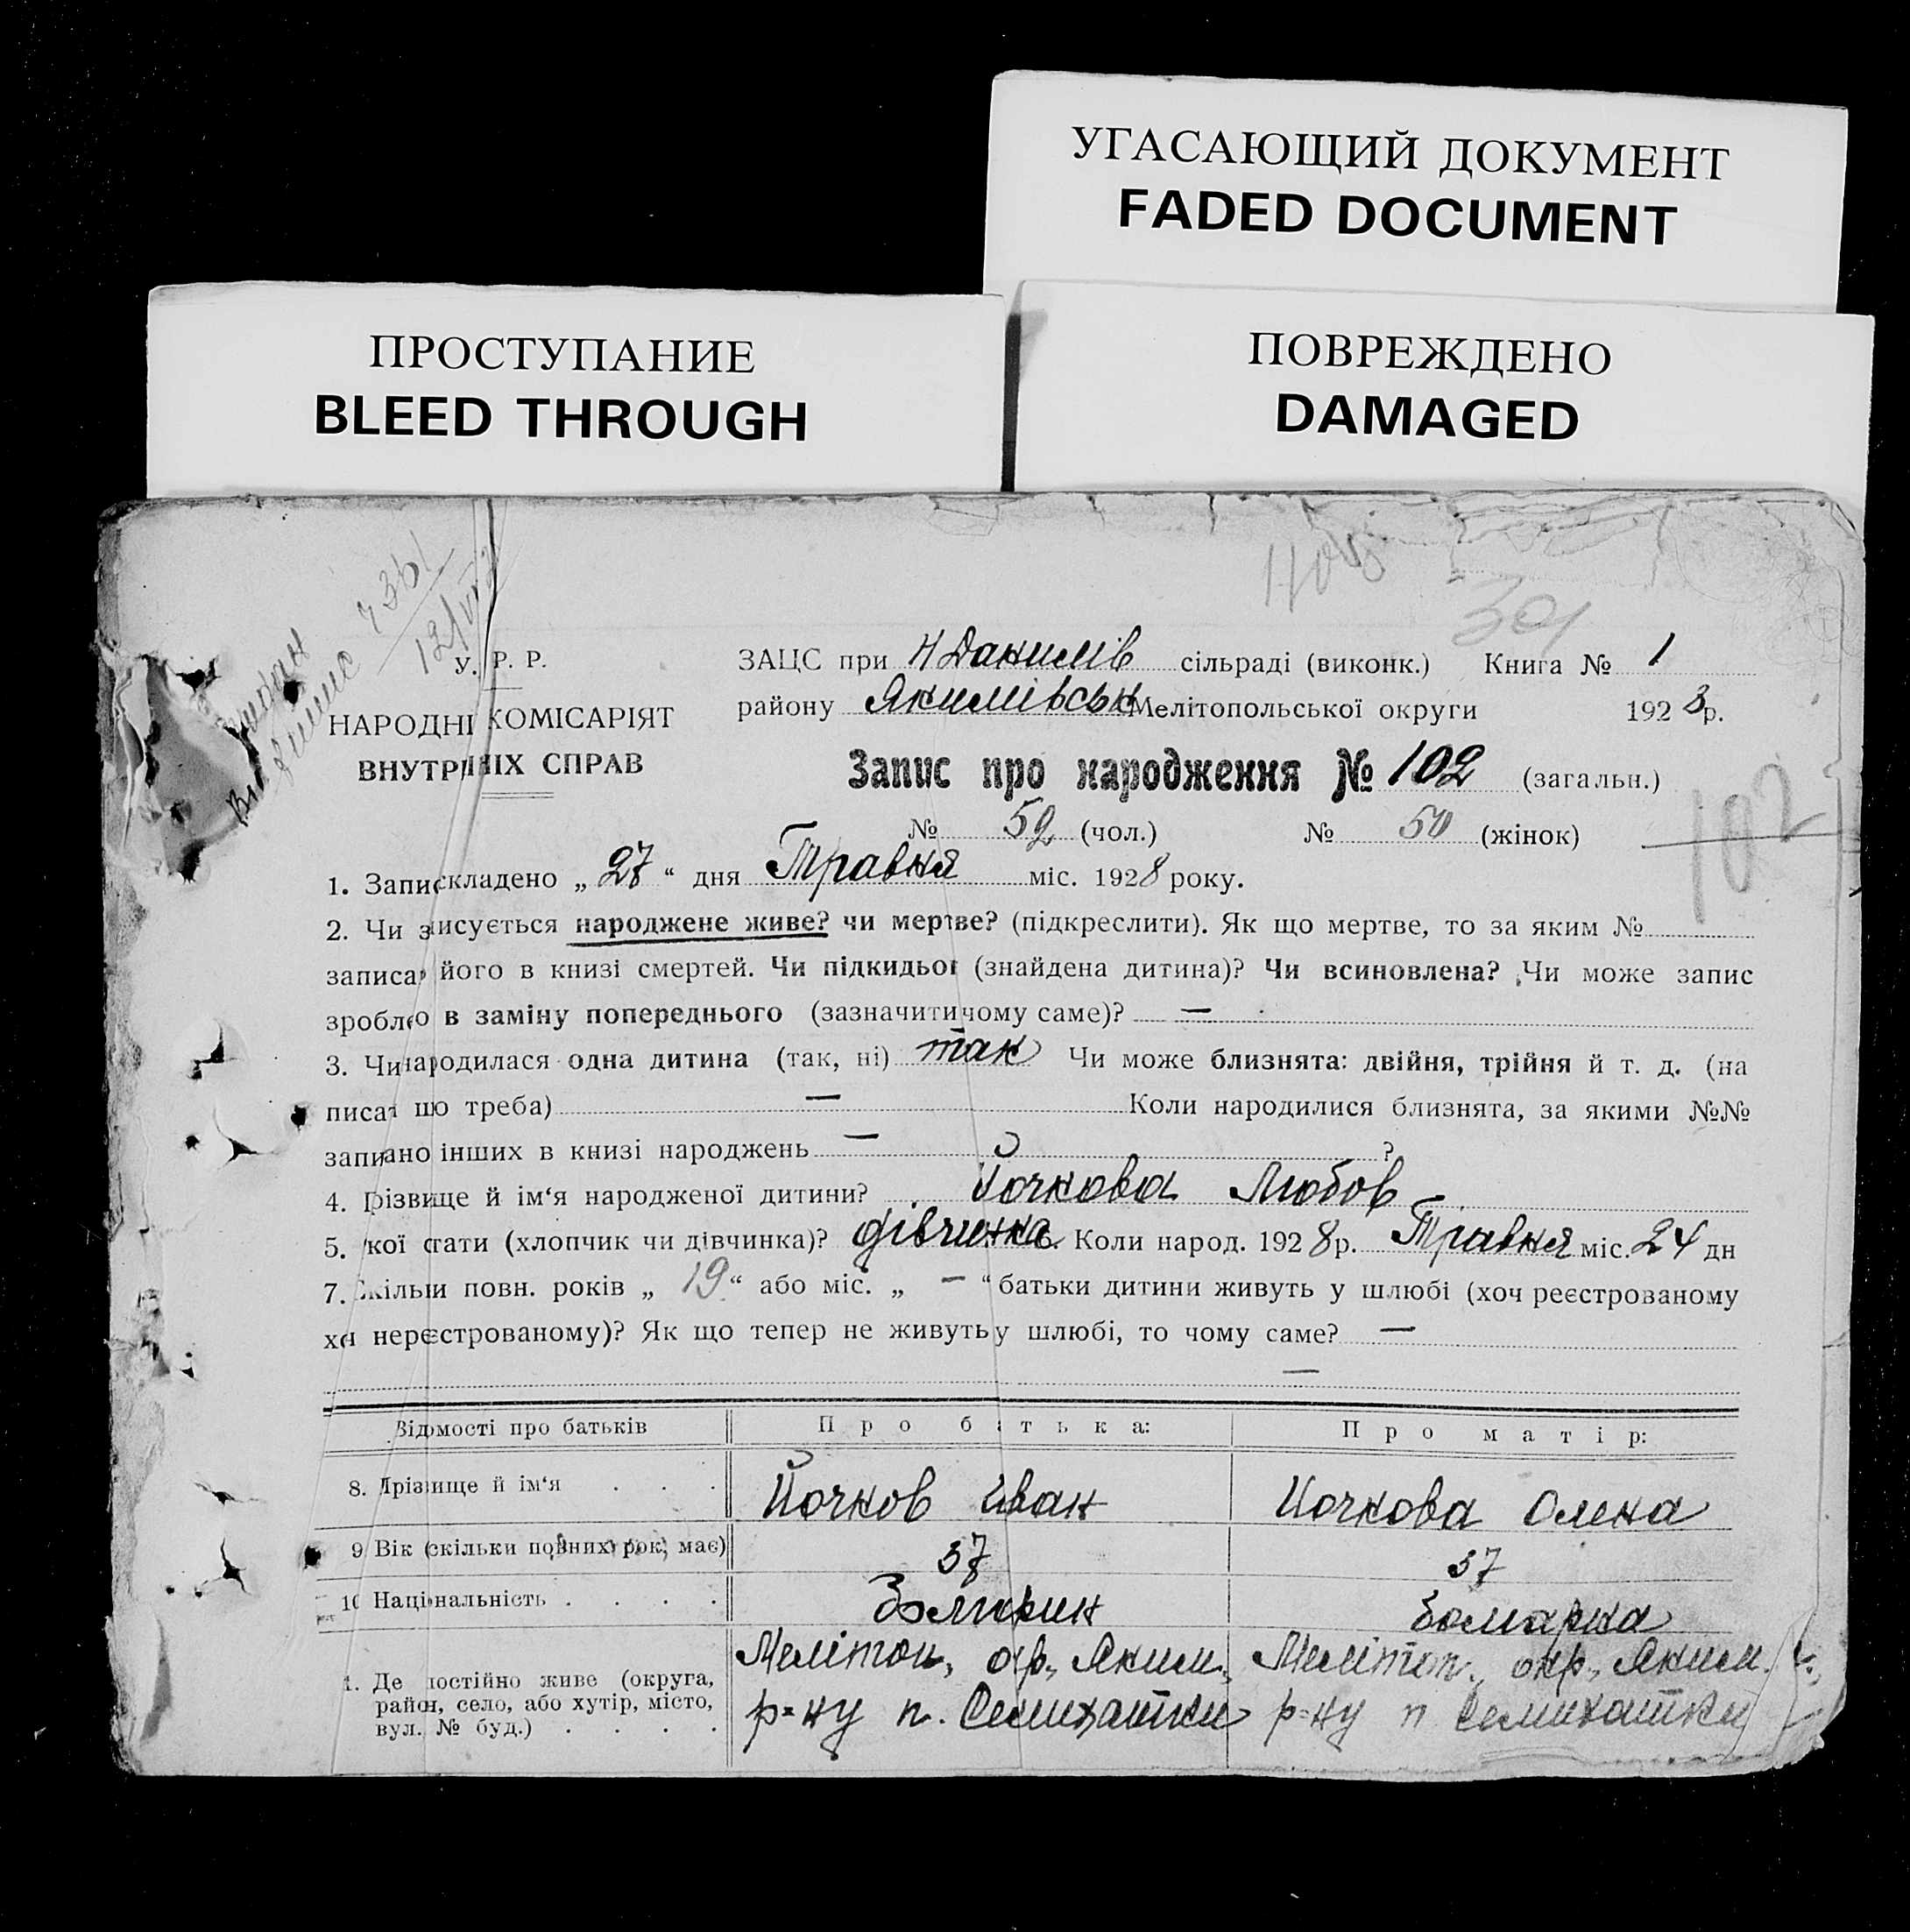 УГАСАЮЩИЙ ДОКУМЕНТ
FADED DOCUMENT
ПРОСТУПАНИЕ
BLEED THROUGH
ПОВРЕЖДЕНО
DAMAGED
301
У. Р. Р.
НАРОДНІ КОМІСАРІЯТ
ВНУТРІ ІХ СПРАВ
ЗАЦС при Н Данилів сільраді (виконк.) Книга № 1
району Якимівськ Мелітопольської округи 1928р.
Запис про народження № 102 (загальн.)
102
№ 52 (чол.) № 50 (жінок)
1. Запи складено „ 27 “ дня Травня міс. 1928 року.
2. Чи з исується народжене живе? чи мертве? (підкреслити). Як що мертве, то за яким №
записа його в книзі смертей. Чи підкидьо (знайдена дитина)? Чи всиновлена? Чи може запис
зробле о в заміну попереднього (зазначити чому саме)? —
3. Чи народилася одна дитина (так, ні) так Чи може близнята: двійня, трійня й т. д. (на
писат що треба) — Коли народилися близнята, за якими №№
запи ано інших в книзі народжень — ?
4. Прізвище й ім‘я народженої дитини? Йочкова Любов
5. кої стати (хлопчик чи дівчинка)? дівчинка 6. Коли народ. 1928р. Травня міс. 24 дн
7. кільки повн. років „ 19 “ або міс. „ — “ батьки дитини живуть у шлюбі (хоч реєстрованому
хо нереєстрованому)? Як що тепер не живуть у шлюбі, то чому саме? —
—
Відомості про батьків Про батька: Про матір:
8. Прізвище й ім‘я Йочков Іван Йочкова Олена
9 Вік (скільки повних рок, має) 37 37
10 Національність Болгарин Болгарка
1. Де постійно живе (округа, район, село, або хутір, місто, вул. № буд.)
Меліт оп. окр., Яким. р-ну п. Семихатки
Мелітоп. окр., Яким. р-ну п Семихатки